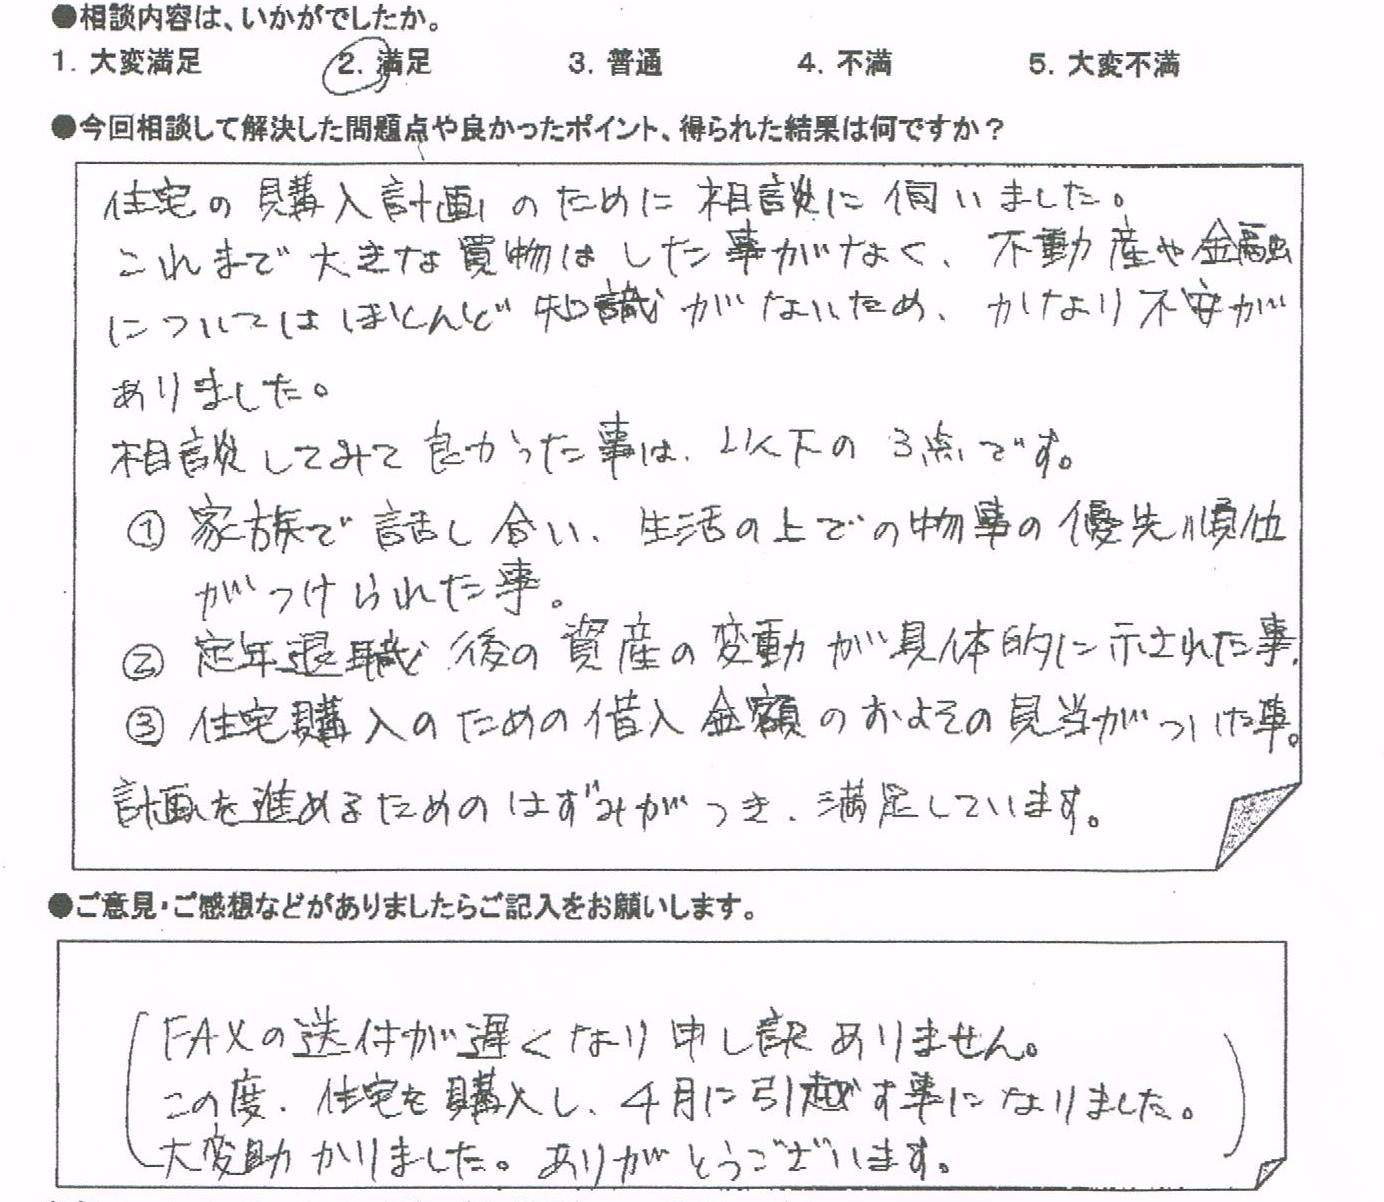 ●相談内容は、いかがでしたか。
1. 大変満足 2. 満足 3. 普通 4. 不満 5. 大変不満
●今回相談して解決した問題点や良かったポイント、得られた結果は何ですか？
住宅の購入計画のために相談に伺いました。
これまで大きな買物はした事がなく、不動産や金融
についてはほとんど知識がないため、かなり不安が
ありました。
相談してみて良かった事は、以下の3点です。
① 家族で話し合い、生活の上での物事の優先順位
がつけられた事。
② 定年退職後の資産の変動が具体的に示された事、
③ 住宅購入のための借入金額のおよその見当がついた事。
計画を進めるためのはずみがつき、満足しています。
●ご意見・ご感想などがありましたらご記入をお願いします。
（FAXの送付が遅くなり申し訳ありません。
この度、住宅を購入し、4月に引越す事になりました。
大変助かりました。ありがとうございます。）